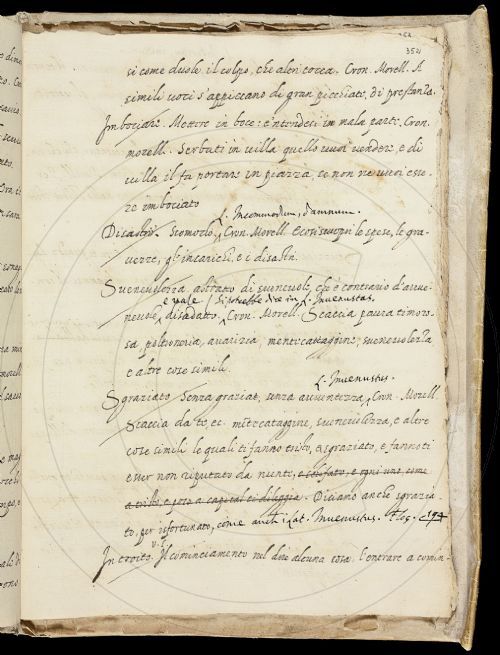 352
si come duole il colpo, che altri tocca. Cron. Morell. A
simili voci s'appiccano di gran , di prestanza.
Imbociare. Mettere in boce: e'intendesi in mala parte. Cron.
morell. Serbati in villa quello vuoi vendere, e di
villa il fa portare in piazza, se non ne vuoi esse-
re imbociato
L. Incommodum, damnum.
Disastro. Scomodo. Cron. Morell. Ecosì seuopri le spese, le gra-
vezze, gl'incarichi, e i disastri.
Svenevolezza astratto di svenevole, che è contrario d'avve-
e vale / Si potrebbe dire in L. Invenustas.
nevole, disadatto. Cron. Morell. Scaccia paura timoro-
sa, poltroneria, avarizia, mentecattaggine, svenevolezza
e altre cose simili.
L. Invenustus.
Sgraziato Senza grazia, senza avvenentezza, Cron. Morell.
Scaccia da te, ec. mentecattaggine, svenevolezza, e altre
cose simili le quali ti fanno tristo, e sgraziato, e fannoti
esser non riputato da niente, e ogni uno, come
a tristo, e a capital ei dileggia. Diciamo anche sgrazia-
to, per isfortunato, come anch i Lat. Invenustus.
v. L.
Introito. Il cominciamento nel dire alcuna cosa. l'entrare a comin-